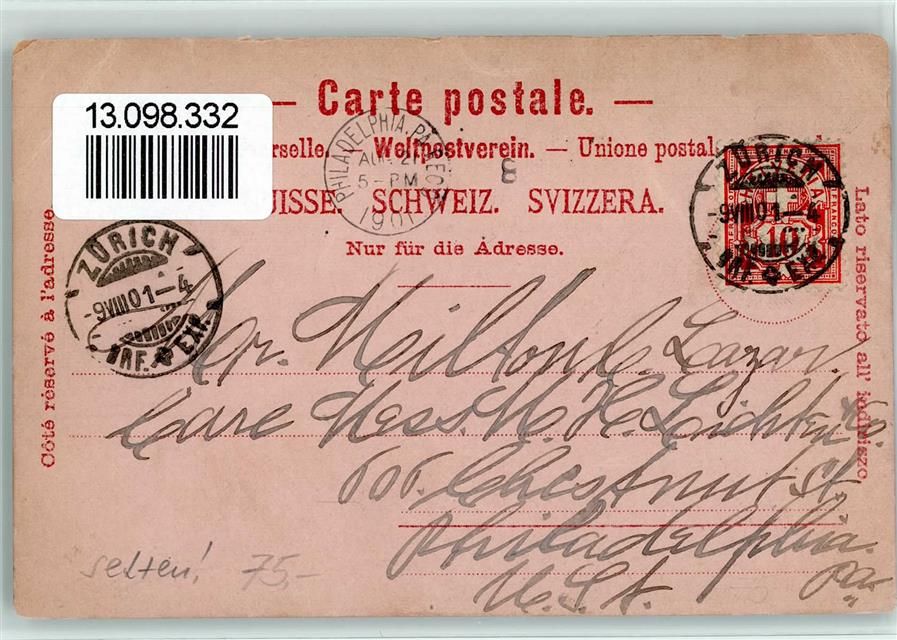 13.098.332
— Carte postale. —
rselle. — Weltpostverein. — Unione postal
UISSE. SCHWEIZ. SVIZZERA.
Nur für die Adresse.
Côté réservé à l'adresse
Lato riservato all' indirizzo.
PHILADELPHIA, PA. REC'D
AUG 21
5-PM
1901
3
ZÜRICH
-9VIII01-4
BRF. EXP.
ZÜRICH
-9VIII01-4
BRF. EXP.
10
FRANCO
Mr. Milton L. Lazar.
Care Mess. M. H. Lichten & Co.
606 Chestnut St.
Philadelphia.
Pa.
U.S.A.
selten! 75,-